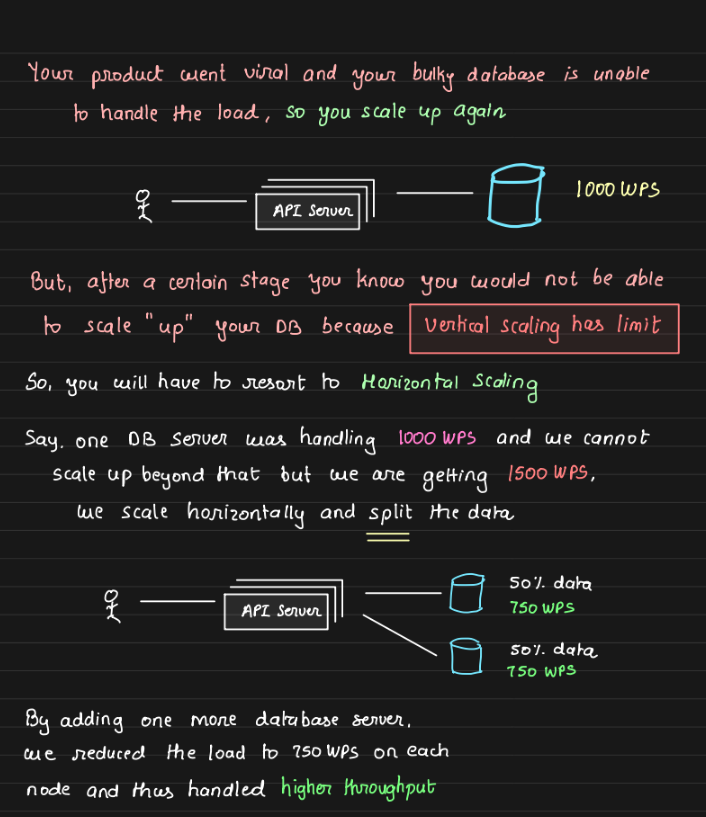 Your product went viral and your bulky database is unable
to handle the load, so you scale up again
API Server
1000 WPS
But, after a certain stage you know you would not be able
to scale "up" your DB because vertical scaling has limit
So, you will have to resort to Horizontal Scaling
Say. one DB server was handling 1000 WPS and we cannot
scale up beyond that but we are getting 1500 WPS,
we scale horizontally and split the data
50% data
750 WPS
API Server
50% data
750 WPS
By adding one more database server,
we reduced the load to 750 WPS on each
node and thus handled higher throughput